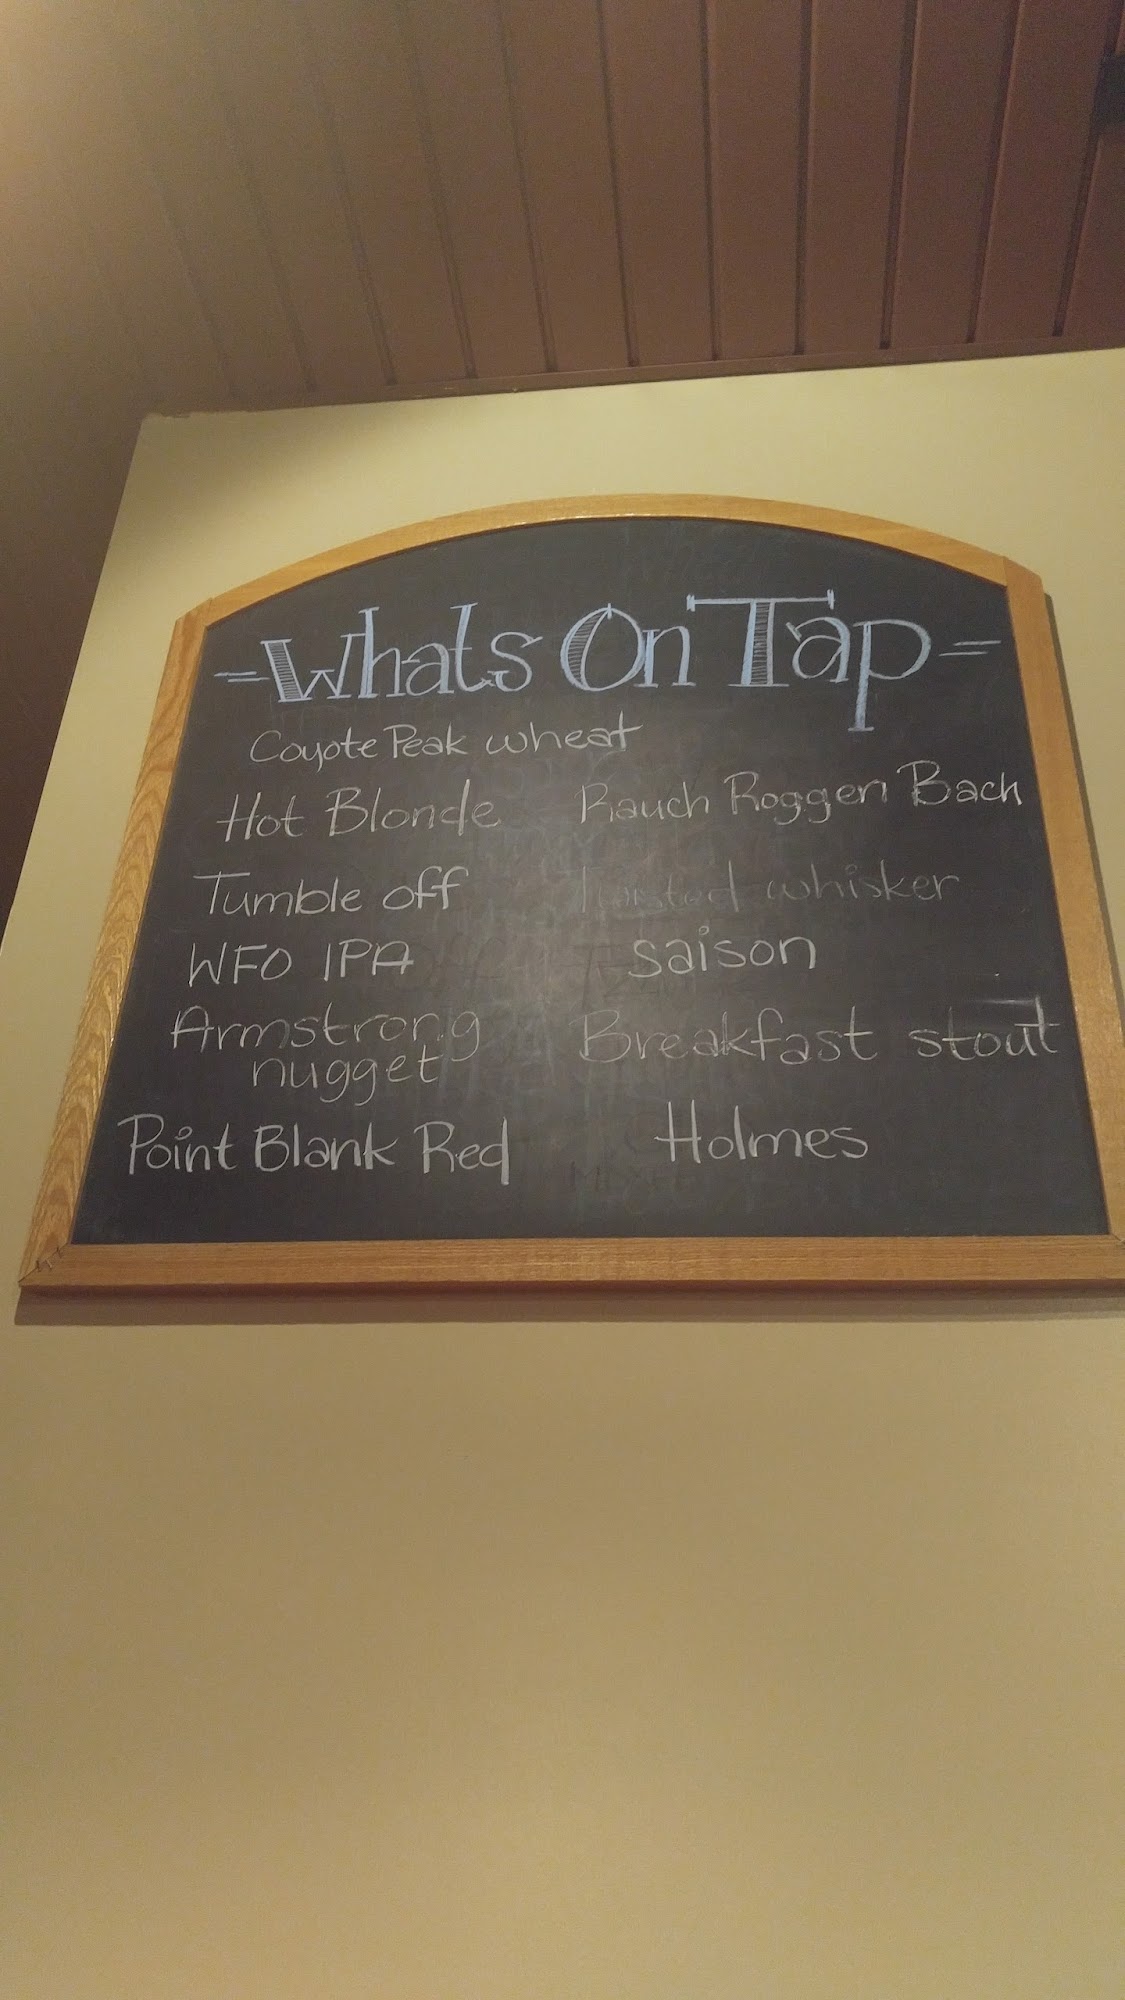 -Whats On Tap-
Coyote Peak wheat
Hot Blonde
Tumble off
WFO IPA
Armstrong
nugget
Point Blank Red
Rauch Roggen Bach
Twisted whisker
saison
Breakfast stout
Holmes